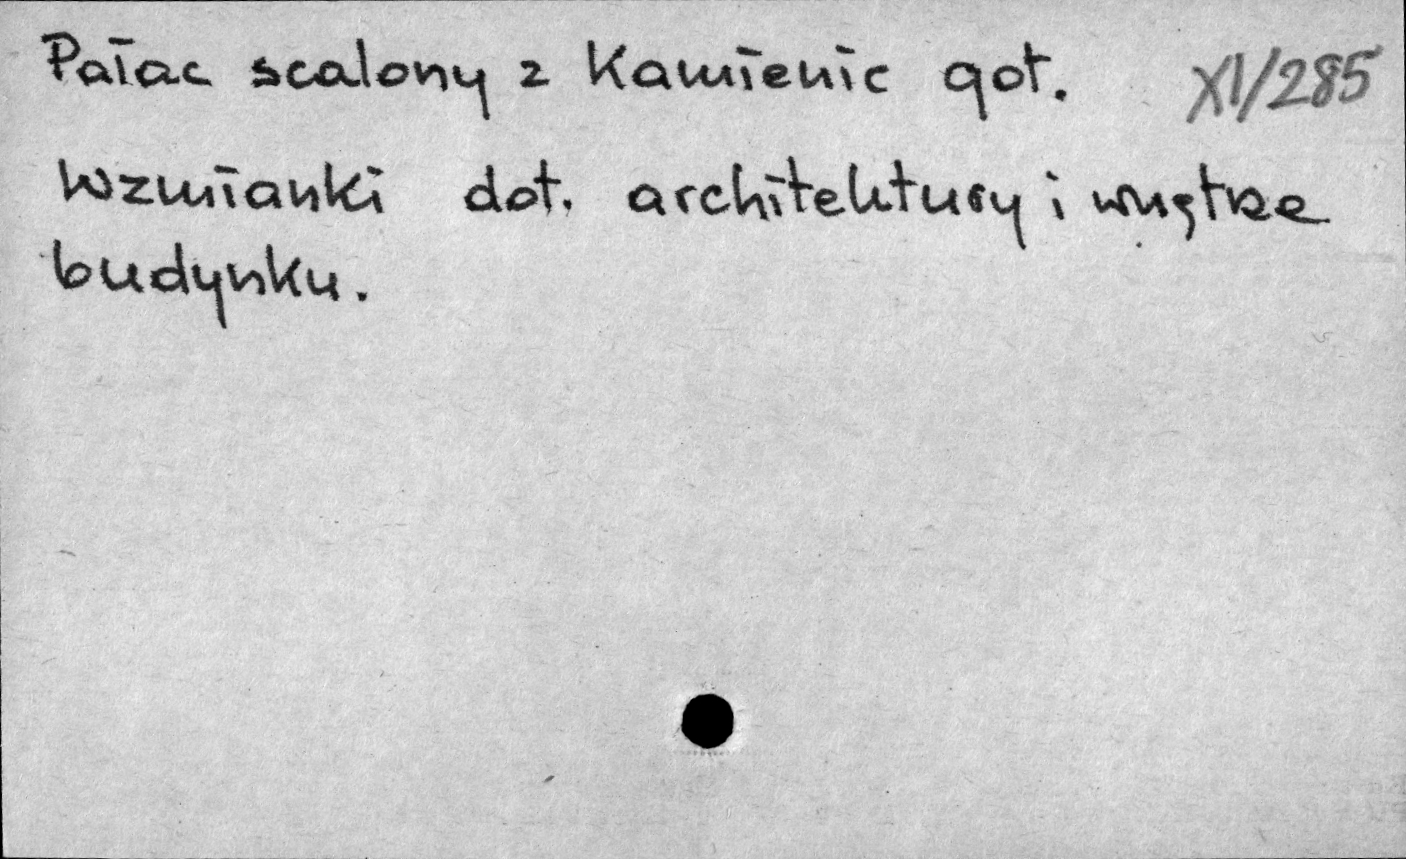 Pałac scalony z Kamienic got. XI/285
Wzmianki dot. architektury i wnętrz
budynku.